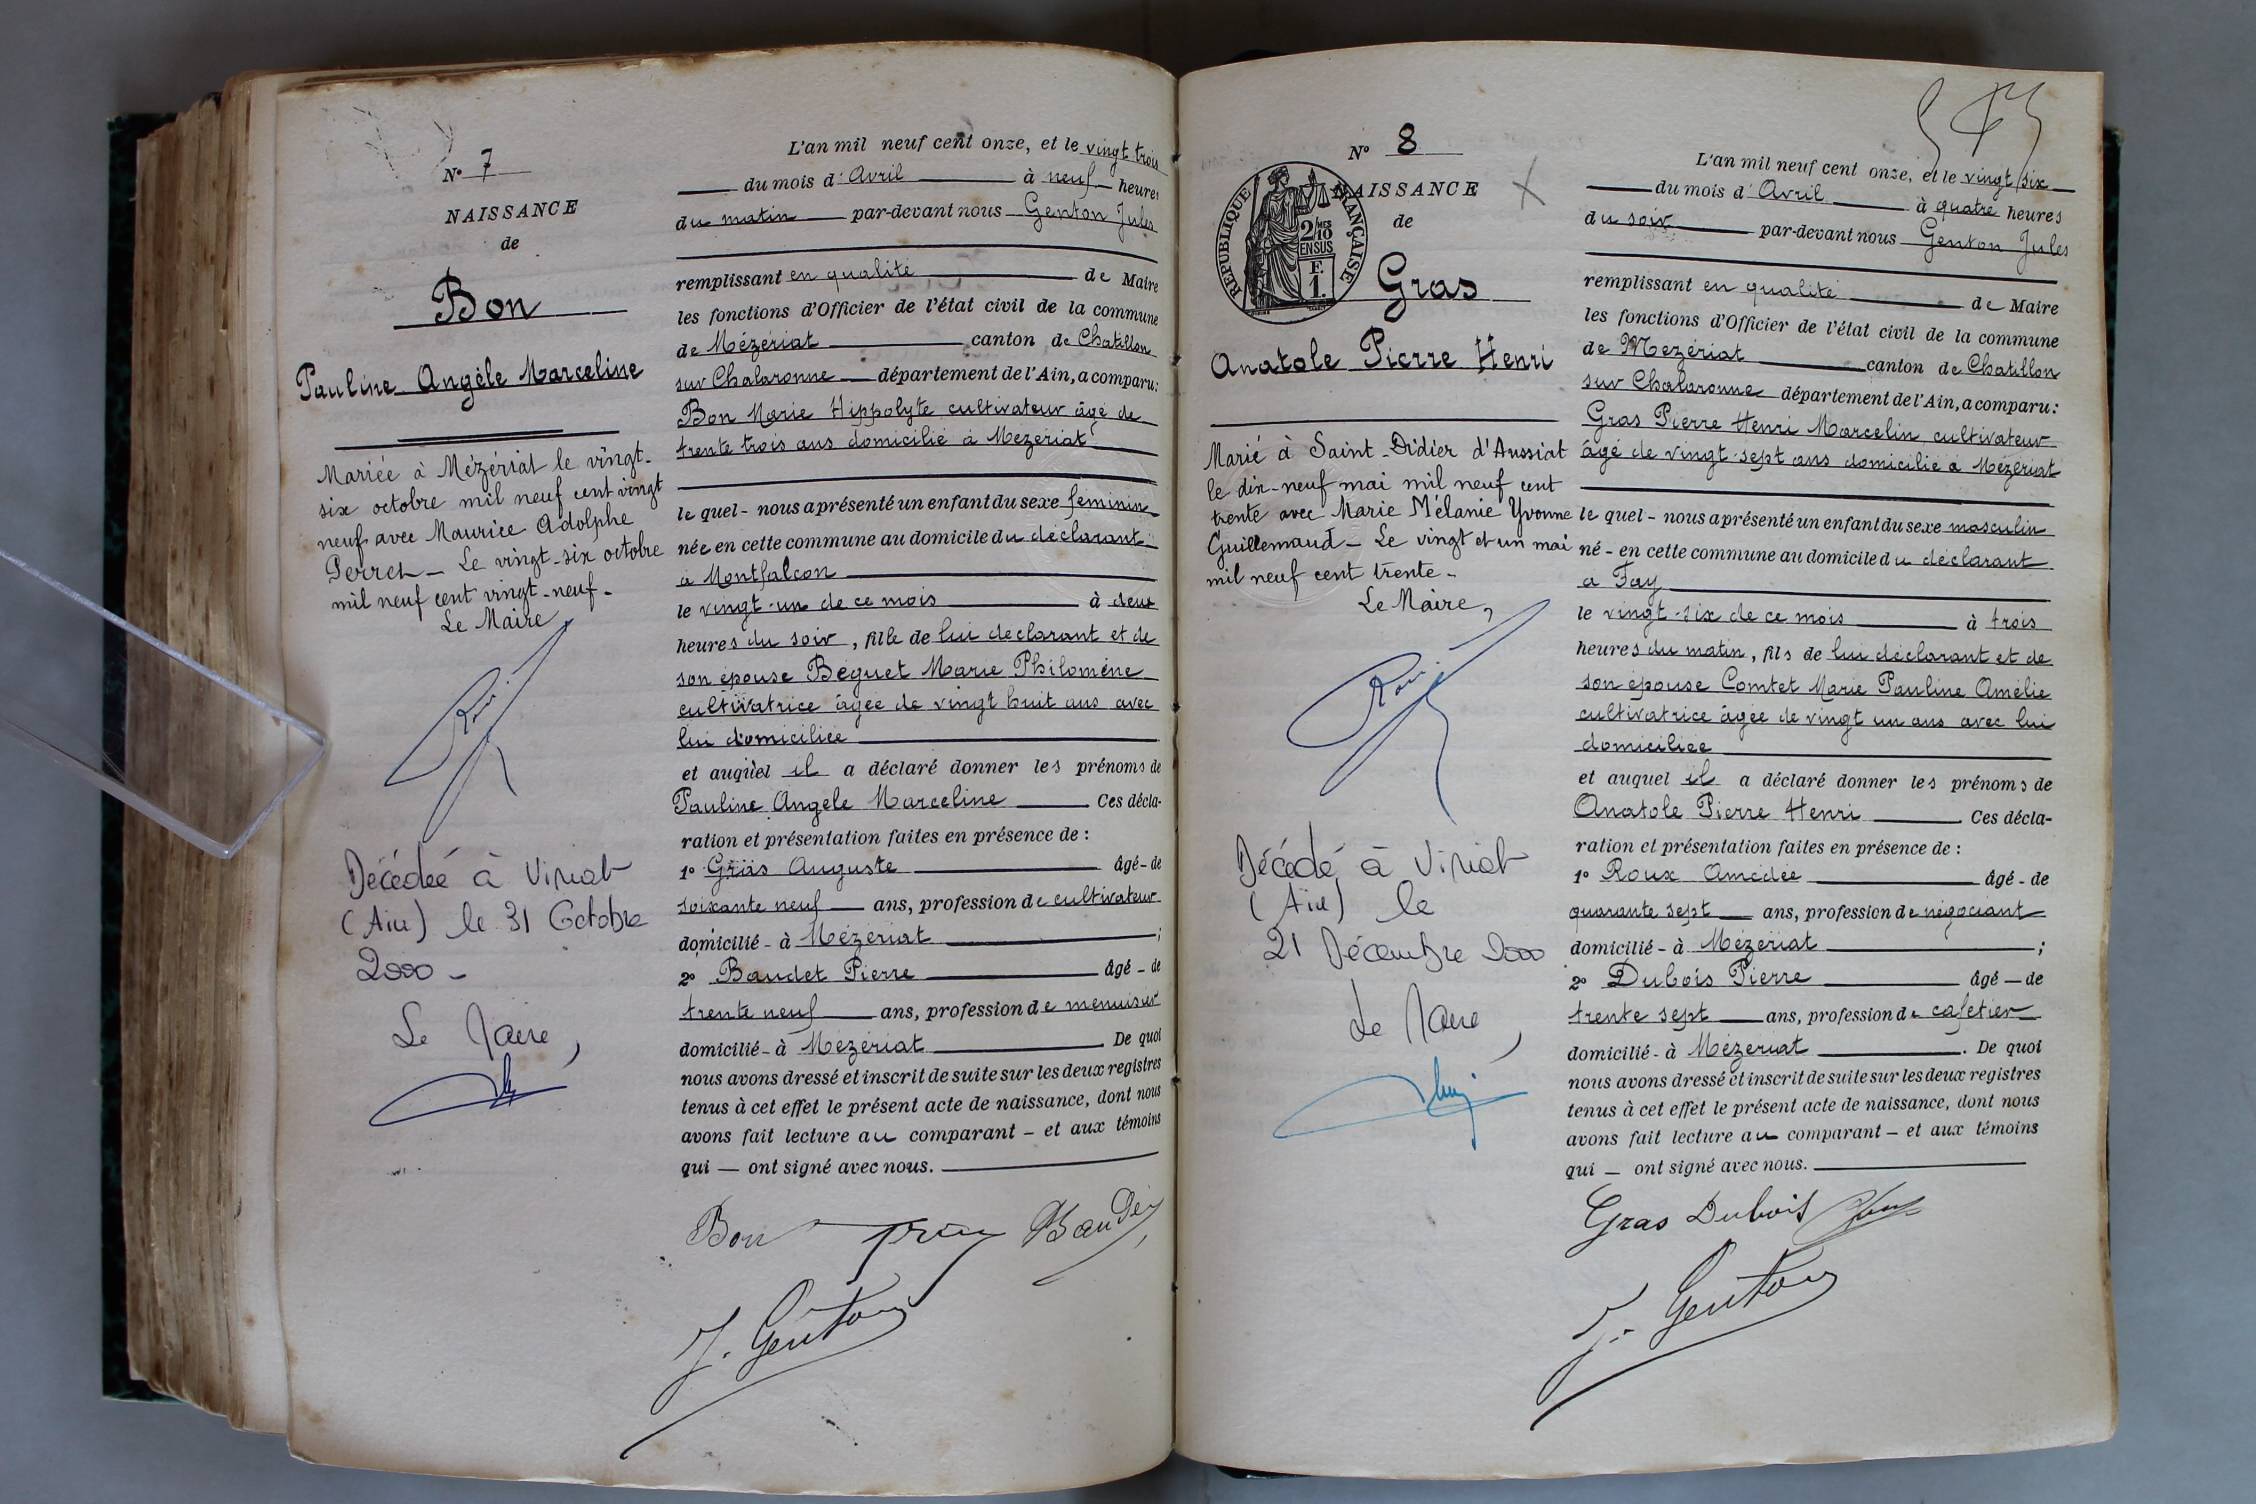 N° 7
NAISSANCE
de
Bon
Pauline Angèle Marceline
Mariée à Mézériat le vingt-
six octobre mil neuf cent vingt
neuf avec Maurice Adolphe
Perret - Le vingt-six octobre
mil neuf cent vingt-neuf-
Le Maire
Décédée à Viriat
(Ain) le 31 Octobre
2000 -
Le Maire,
L'an mil neuf cent onze, et le vingt trois
du mois d'Avril à neuf heures
du matin par-devant nous Genton Jules
remplissant en qualité de Maire
les fonctions d'Officier de l'état civil de la commune
de Mézériat canton de Chatillon
sur Chalaronne département de l'Ain, a comparu:
Bon Marie Hippolyte cultivateur âgé de
trente trois ans domicilié à Mézériat
le quel - nous a présenté un enfant du sexe féminin
née en cette commune au domicile du déclarant
à Montfalcon
le vingt-un de ce mois à deux
heures du soir, fille de lui déclarant et de
son épouse Béguet Marie Philomène
cultivatrice âgée de vingt huit ans avec
lui domiciliée
et auquel il a déclaré donner les prénoms de
Pauline Angèle Marceline Ces décla-
ration et présentation faites en présence de :
1° Gras Auguste âgé - de
soixante neuf ans, profession de cultivateur
domicilié - à Mézériat ;
2° Baudet Pierre âgé - de
trente neuf ans, profession de menuisier
domicilié - à Mézériat . De quoi
nous avons dressé et inscrit de suite sur les deux registres
tenus à cet effet le présent acte de naissance, dont nous
avons fait lecture au comparant - et aux témoins
qui — ont signé avec nous.
Bon Gras Baudet
J. Genton
N° 8
NAISSANCE
de
RÉPUBLIQUE FRANÇAISE
2/10 MES
EN SUS
F.
1.
Gras
Anatole Pierre Henri
Marié à Saint-Didier d'Aussiat
le dix-neuf mai mil neuf cent
trente avec Marie Mélanie Yvonne
Guillemaud - Le vingt et un mai
mil neuf cent trente -
Le Maire,
Décédé à Viriat
(Ain) le
21 Décembre 2000
Le Maire,
L'an mil neuf cent onze, et le vingt six
du mois d'Avril à quatre heures
du soir par-devant nous Genton Jules
remplissant en qualité de Maire
les fonctions d'Officier de l'état civil de la commune
de Mezériat canton de Chatillon
sur Chalaronne département de l'Ain, a comparu:
Gras Pierre Henri Marcelin cultivateur
âgé de vingt-sept ans domicilié à Mézériat
le quel - nous a présenté un enfant du sexe masculin
né - en cette commune au domicile du déclarant
a Fay
le vingt-six de ce mois à trois
heures du matin, fils de lui déclarant et de
son épouse Comtet Marie Pauline Amélie
cultivatrice âgée de vingt un ans avec lui
domiciliée
et auquel il a déclaré donner les prénoms de
Anatole Pierre Henri . Ces décla-
ration et présentation faites en présence de :
1° Roux Amédée âgé - de
quarante sept ans, profession de négociant
domicilié - à Mézériat ;
2° Dubois Pierre âgé — de
trente sept ans, profession de cafetier
domicilié - à Mézériat . De quoi
nous avons dressé et inscrit de suite sur les deux registres
tenus à cet effet le présent acte de naissance, dont nous
avons fait lecture au comparant - et aux témoins
qui — ont signé avec nous.
Gras Dubois
J. Genton